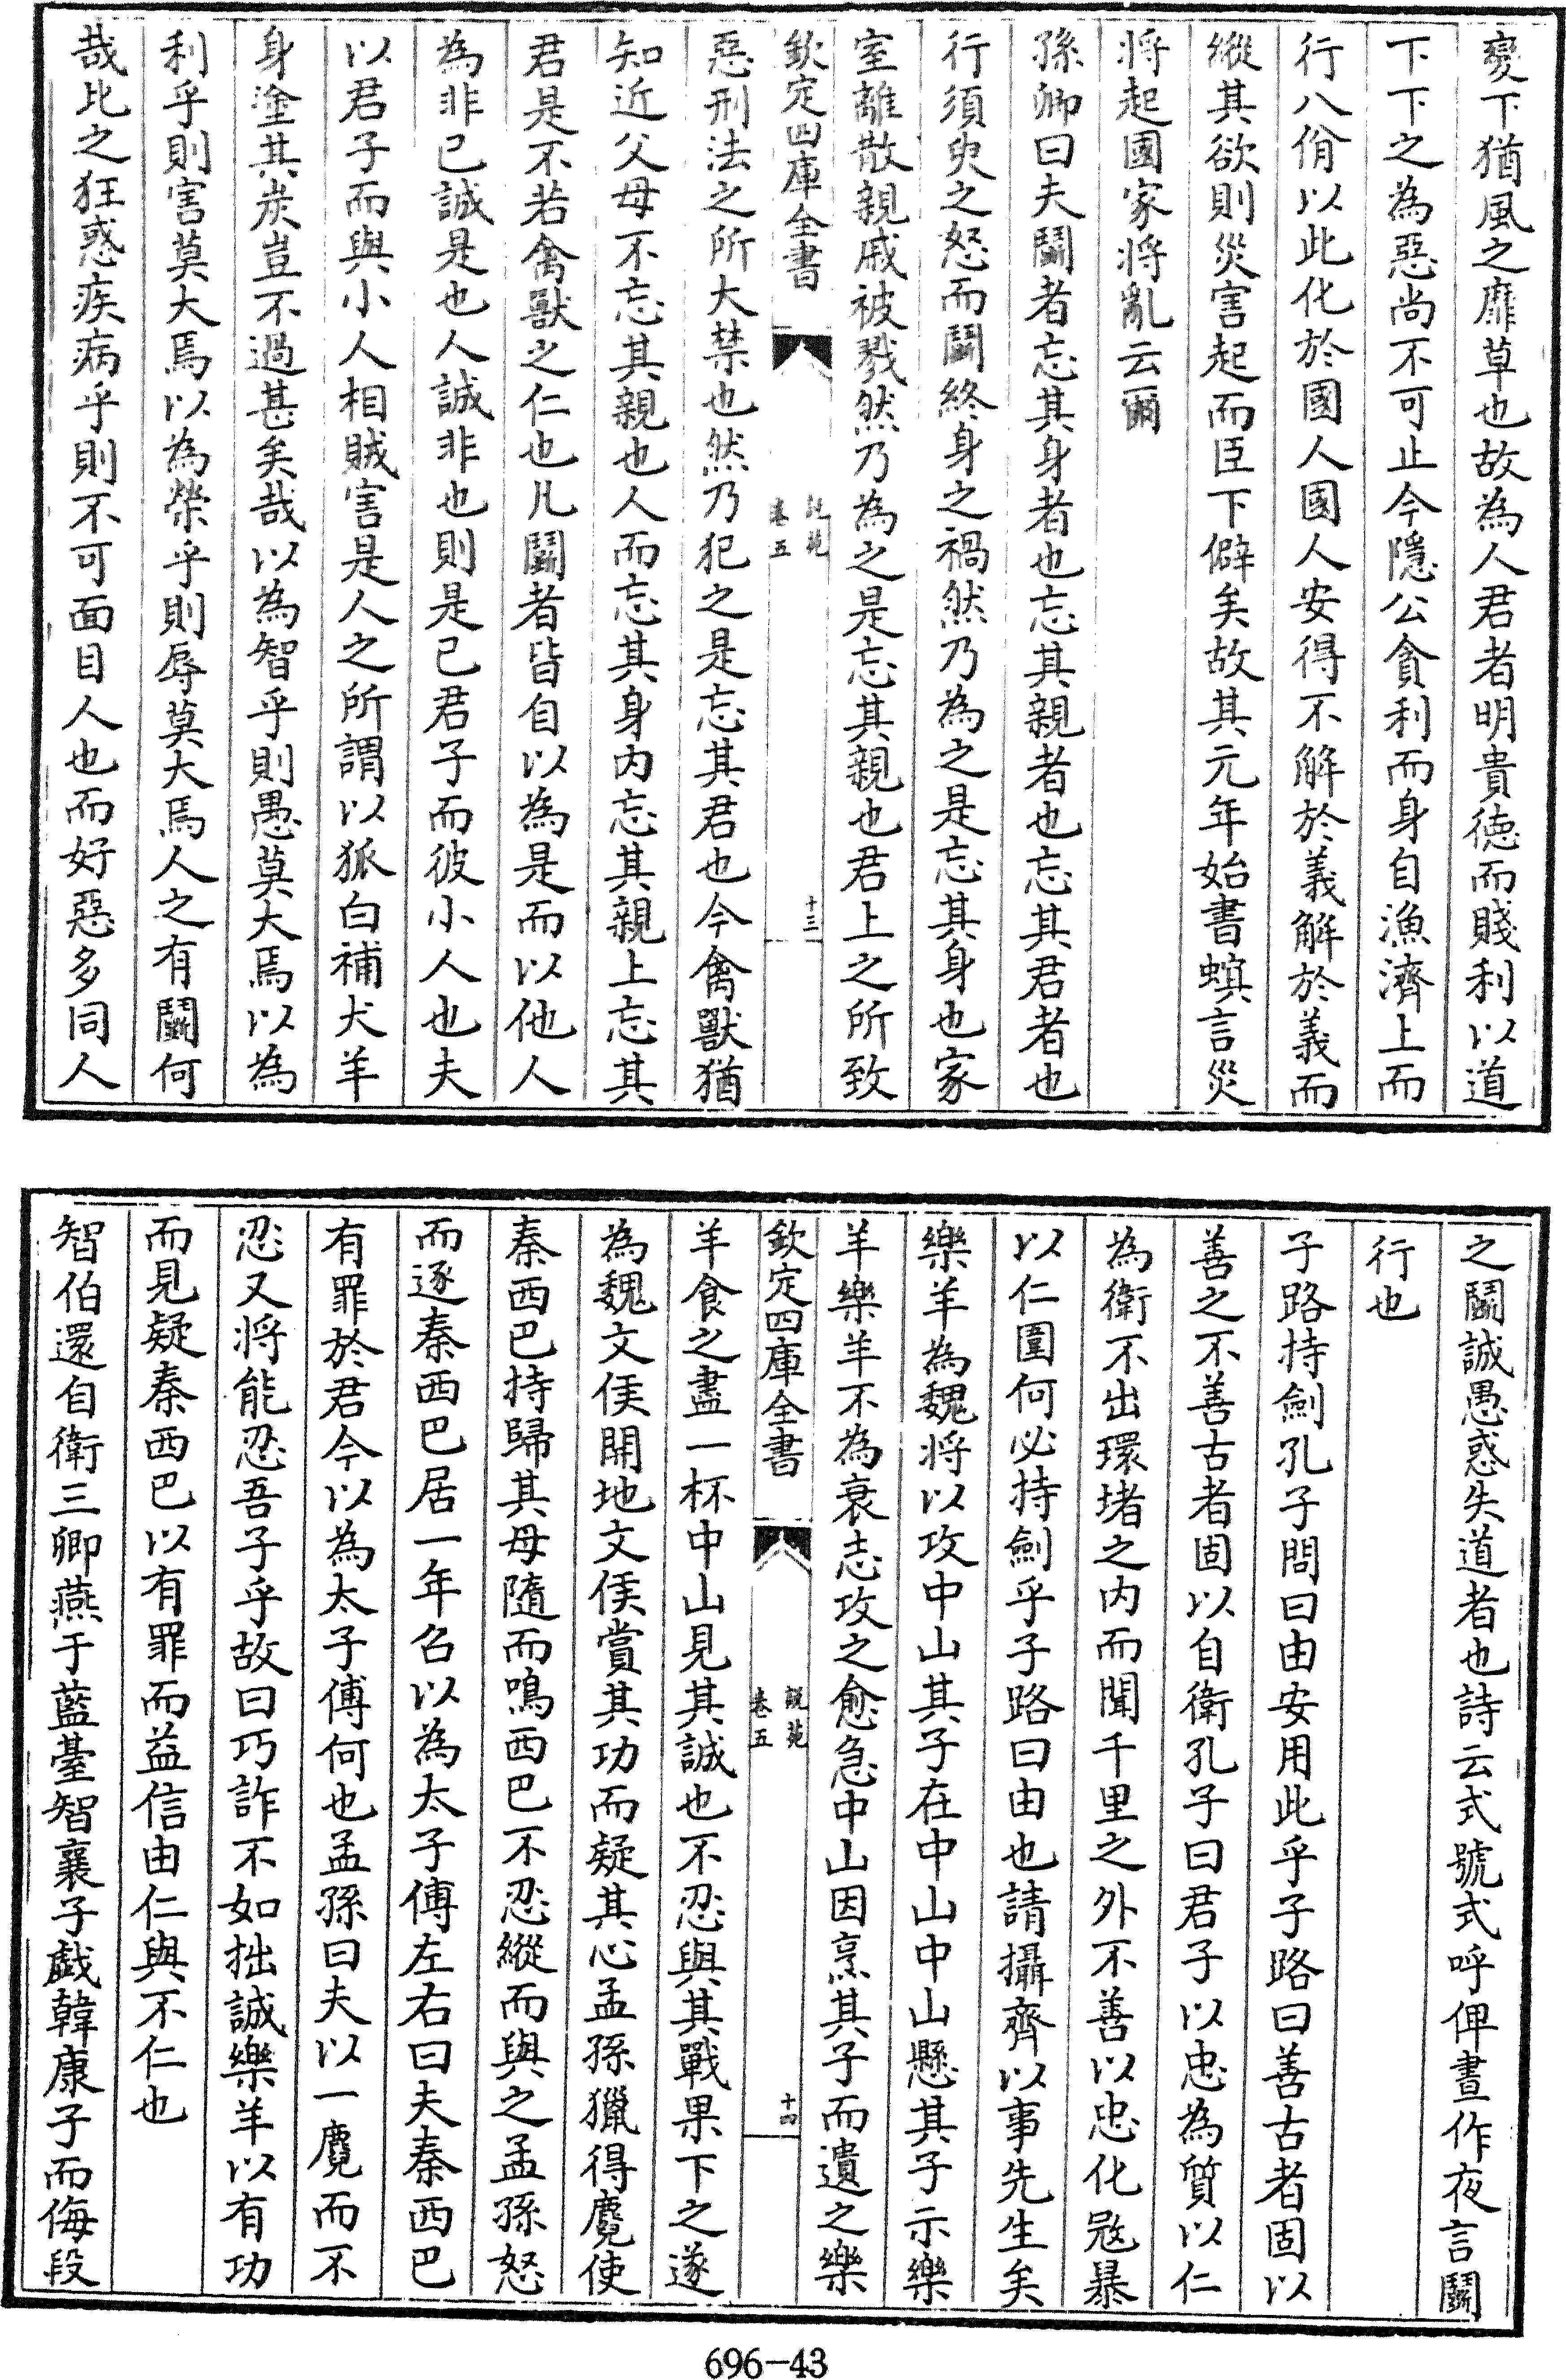 變下猶風之靡草也故為人君者明貴徳而賤利以道
下下之為惡尚不可止今隱公貪利而身自漁濟上而
行八佾以此化於國人國人安得不解於義解於義而
縱其欲則災害起而臣下僻矣故其元年始書螟言災
将起國家将亂云爾
孫卿曰夫鬬者忘其身者也忘其親者也忘其君者也
行須臾之怒而鬬終身之禍然乃為之是忘其身也家
室離散親戚被戮然乃為之是忘其親也君上之所致
欽定四庫全書
說苑
卷五
十三
惡刑法之所大禁也然乃犯之是忘其君也今禽獸猶
知近父母不忘其親也人而忘其身内忘其親上忘其
君是不若禽獸之仁也凡鬬者皆自以為是而以他人
為非已誠是也人誠非也則是已君子而彼小人也夫
以君子而與小人相賊害是人之所謂以狐白補犬羊
身塗其炭豈不過甚矣哉以為智乎則愚莫大焉以為
利乎則害莫大焉以為榮乎則辱莫大焉人之有鬬何
哉比之狂惑疾病乎則不可面目人也而好惡多同人
之鬬誠愚惑失道者也詩云式號式呼俾晝作夜言鬬
行也
子路持劍孔子問曰由安用此乎子路曰善古者固以
善之不善古者固以自衛孔子曰君子以忠為質以仁
為衛不出環堵之内而聞千里之外不善以忠化寇暴
以仁圍何必持劍乎子路曰由也請攝齊以事先生矣
樂羊為魏将以攻中山其子在中山中山懸其子示樂
羊樂羊不為衰志攻之愈急中山因烹其子而遺之樂
欽定四庫全書
說苑
卷五
十四
羊食之盡一杯中山見其誠也不忍與其戰果下之遂
為魏文侯開地文侯賞其功而疑其心孟孫獵得麑使
秦西巴持歸其母隨而鳴西巴不忍縱而與之孟孫怒
而逐秦西巴居一年召以為太子傅左右曰夫秦西巴
有罪於君今以為太子傅何也孟孫曰夫以一麑而不
忍又将能忍吾子乎故曰巧詐不如拙誠樂羊以有功
而見疑秦西巴以有罪而益信由仁與不仁也
智伯還自衛三卿燕于藍臺智襄子戲韓康子而侮段
696-43